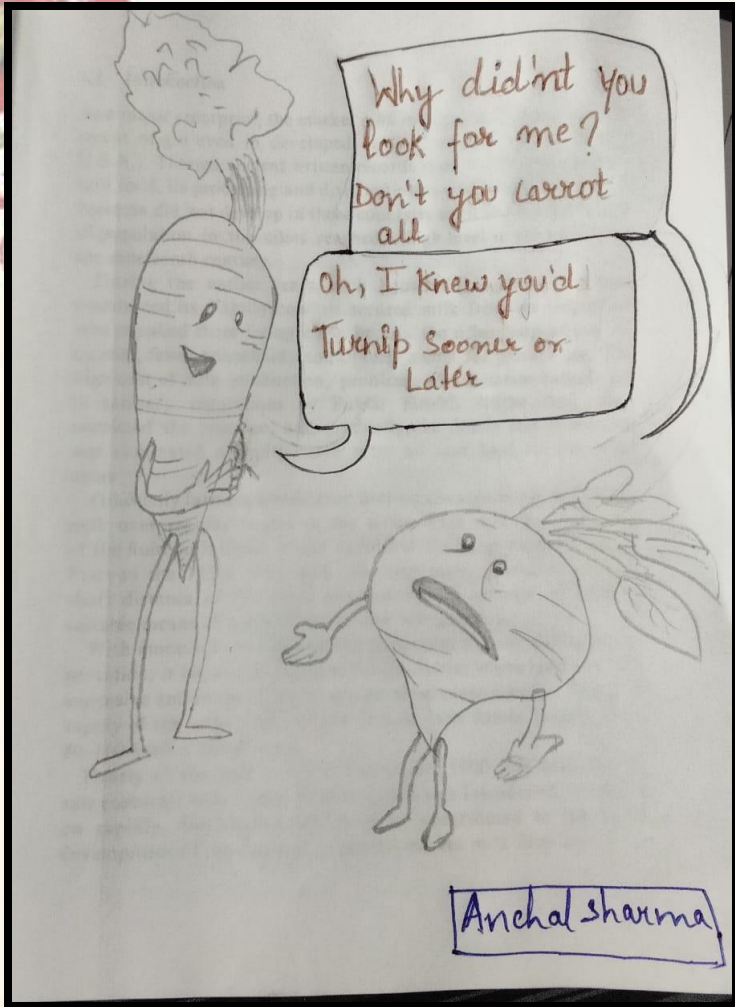 Why did'nt you
look for me?
Don't you carrot
all
Oh, I knew you'd
Turnip sooner or
Later
Anchal sharma